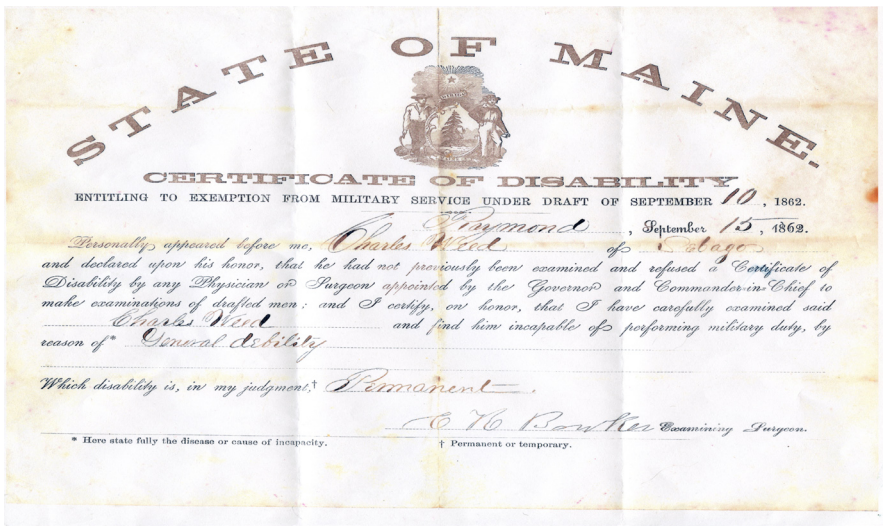 STATE OF MAINE.
CERTIFICATE OF DISABILITY
ENTITLING TO EXEMPTION FROM MILITARY SERVICE UNDER DRAFT OF SEPTEMBER 10, 1862.
Raymond, September 15, 1862.
Personally appeared before me, Charles Weed of Sebago
and declared upon his honor, that he had not previously been examined and refused a Certificate of
Disability by any Physician or Surgeon appointed by the Governor and Commander-in-Chief to
make examinations of drafted men; and I certify, on honor, that I have carefully examined said
Charles Weed and find him incapable of performing military duty, by
reason of* General debility
Which disability is, in my judgment,† Permanent.
E N Bowker Examining Surgeon.
* Here state fully the disease or cause of incapacity. † Permanent or temporary.